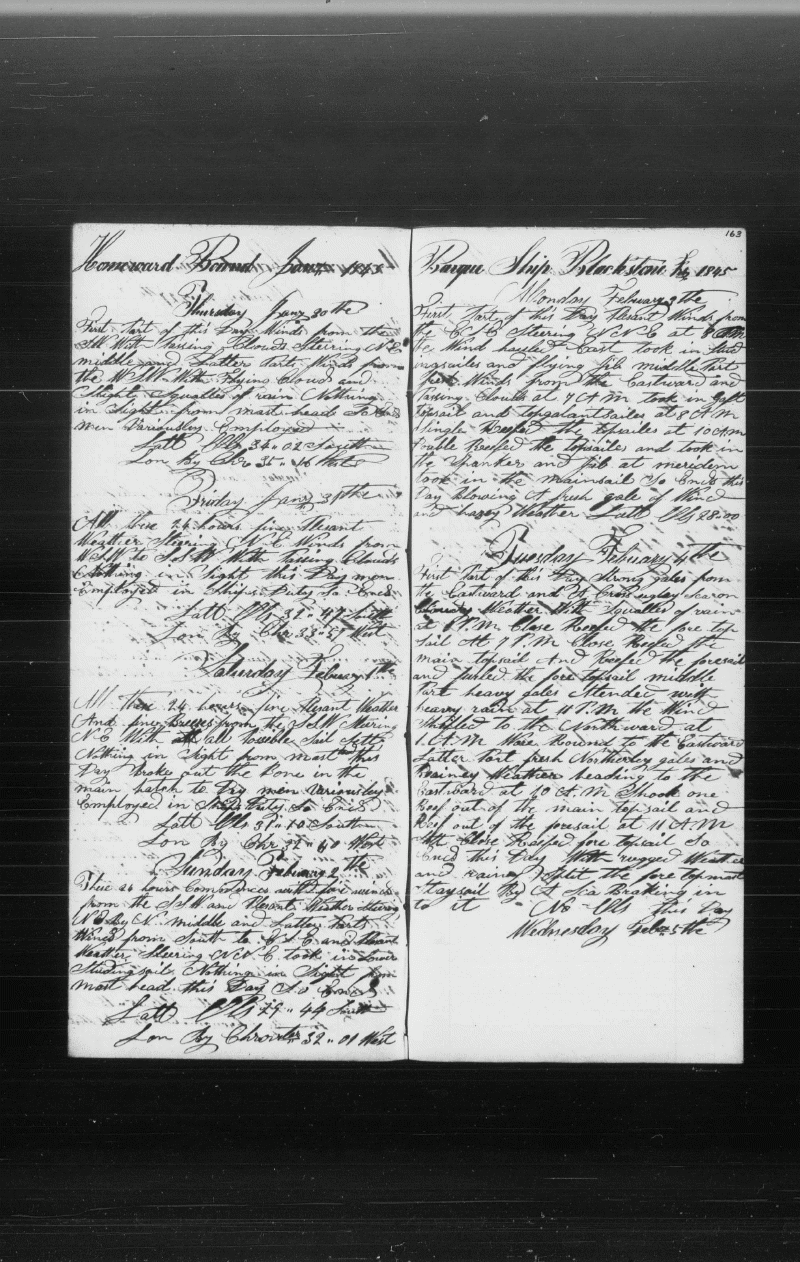 Homeward Bound Jany 1845
Thursday Jany 30 the
First Part of this Day Winds from the
SSW With Passing Clouds Steering N E
middle and Latter Parts Winds from
the WSW With Flying Clouds and
Slight Squalles of rain Nothing
in Sight from mast head So Ends
men Variousley Employed
Latt Obs 34 " 02 South
Lon By Chr 35 " West
Friday Jany 31 the
All these 24 hours fine Plesant
Weather Steering N E Winds from
WSW to SSW With Passing Clouds
Nothing in Sight this Day men
Employed in Ships Duty So Ends
Latt Obs 32 " 47 South
Lon By Chr 33 " 57 West
Saturday Febuary 1 the
All these 24 hours fine Plesant Weather
And fine breeses from the SSW Stering
N E With all Possible Sail Set
Nothing in Sight from mast this
Day broke out the bone in the
main hatch to Dry men variousley
Employed in Ships Duty So Ends
Latt Obs 31 " 10 South
Lon By Chr 32 " 40 West
Sunday Febuary 2 the
These 24 hours Commences with fine winds
from the SSW and Plesant Weather Steering
N E By N middle and Latter Parts
Winds from South to E S E and Plesant
Weather Steering N N E took in Lower
Studingsail Nothing in Sight from
mast head this Day So Ends
Latt Obs 29 " 44 South
Lon By Chronter 32 " 01 West
163
Barque Ship Blackstone Feby 1845
Monday Febuary 3 the
First Part of this Day Plesant Winds from
the E S E Steering N N E at 8 PM
the Wind hauled East took in Stud
ingsailes and flying jib middle Part
fresh Winds from the Eastward and
Passing Clouds at 7 A M took in Gaft
topsail and topgalantsailes at 8 A M
Single Reefed the topsailes at 10 AM
Double Reefed the topsailes and took in
the Spanker and jib at meridem
took in the mainsail So Ends this
Day blowing A fresh gale of Wind
and hazey Weather Latt Obs 28 " 00
Tuesday Febuary 4 the
First Part of this Day Strong gales from
the Eastward and A Cross ugley Sea on
Cloudy Weather With Squalles of rain
at 1 P.M Close Reefed the fore top
sail At 7 P.M Close Reefed the
main topsail And Reefed the foresail
and furled the fore topsail middle
Part heavy gales Atended with
heavy rain at 11 P.M the Wind
Shifted to the Northward at
1. A M Wore Round to the Eastward
Latter Part fresh Northerley gales and
Rainey Weather heading to the
Eastward at 10 A M Shook one
Reef out of the main topsail and
Reef out of the foresail at 11 A M
Set Close Reefed fore topsail So
Ends this Day With rugged Weather
and rainey Split the fore topmast
Staysail By A Sea Braking in
to it No Obs this Day
Wednesday Feb 5 the